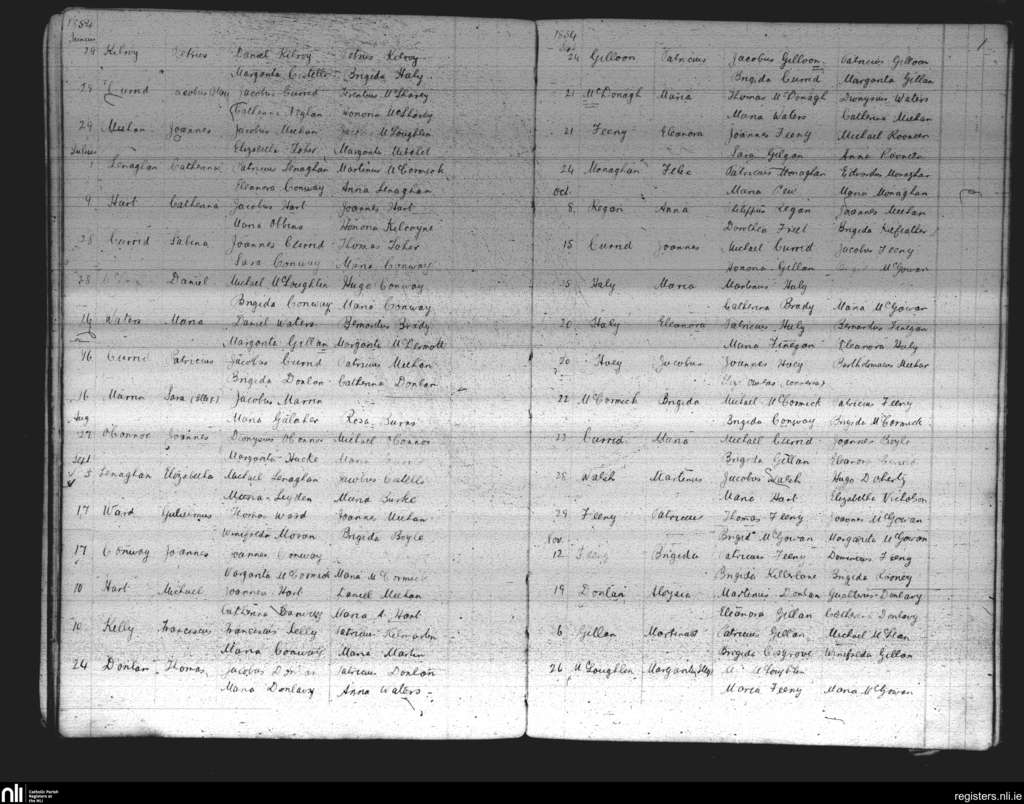 1884
29 Kilroy Petrus Daniel Kilroy Petrus Kilroy
Margarita Costello Brigida Haly
29 Currid Jacobus Jacobus Currid Terentius McSharry
Catherina Honoria McSharry
29 Meehan Joannes Jacobus Meehan McLoughlin
Elizabetha Toher Margarita Mitchel
Lenaghan Catherina Patricius Lenaghan Martinus McCormick
Eleanora Conway Anna Lenaghan
9 Hart Catherina Jacobus Hart Joannes Hart
Maria Honoria
28 Currid Sabina Joannes Currid Thomas Toher
Sara Conway Maria Conway
28 Daniel Michael McLoughlin Hugo Conway
Brigida Conway Maria Conway
Waters Maria Daniel Waters Bernardus Brady
Margarita Gillan Margarita McDermott
16 Currid Patricius Jacobus Currid Patricius Meehan
Brigida Donlan Catherina Donlan
16 Marrin Sara Jacobus Marrin
Maria Galaher Rosa Burns
Aug
27 O'Connor Joannes Dionysius O'Connor Michael O'Connor
Margarita Hacke Maria
Sept
5 Lenaghan Elizabetha Michael Lenaghan Jacobus Costello
Maria Leyden Maria Burke
17 Ward Gulielmus Thomas Ward Joannes Meehan
Winifreda Moran Brigida Boyle
17 Conway Joannes Joannes Conway
Margarita McCormick Maria McCormick
10 Hart Michael Joannes Hart Daniel Meehan
Catherina Maria A. Hart
10 Kelly Franciscus Franciscus Kelly Patricius
Maria Conway Maria Martin
24 Donlan Thomas Jacobus Donlan Patricius Donlan
Maria Donlavy Anna Waters
1884
1
24 Gilloon Patricius Jacobus Gilloon Patricius Gilloon
Brigida Currid Margarita Gillan
21 McDonagh Maria Thomas McDonagh Dionysius Waters
Maria Waters Catherina Meehan
21 Feeny Eleanora Joannes Feeny Michael
Sara Gilgan Anna
24 Monaghan Felix Patricius Monaghan Edvardus Monaghan
Oct. Maria Maria Monaghan
8 Regan Anna Philippus Regan Joannes Meehan
Dorothea Friel Brigida
15 Currid Joannes Michael Currid Jacobus Feeny
Honoria Gillan McGowan
15 Haly Maria Martinus Haly
Catherina Brady Maria McGowan
20 Haly Eleanora Patricius Haly Bernardus Finegan
Maria Finegan Eleanora Haly
20 Huey Jacobus Joannes Huey Bartholomaeus Meehan

22 McCormick Brigida Michael McCormick Patricius Feeny
Brigida Conway Brigida McCormick
23 Currid Maria Michael Currid Joannes Boyle
Brigida Gillan Eleanora Currid
28 Walsh Martinus Jacobus Walsh Hugo Doherty
Maria Hart Elizabetha Nicholson
29 Feeny Patricius Thomas Feeny Joannes McGowan
Nov. Brigida McGowan Margarita McGowan
12 Feeny Brigida Patricius Feeny Dominicus Feeny
Brigida Killelane Brigida Rooney
19 Donlan Aloysia Martinus Donlan Gualterus Donlavy
Eleanora Gillan Catherina Donlavy
6 Gillan Martinus Patricius Gillan Michael McKean
Brigida Cosgrove Winifrida Gillan
26 McLoughlin Margarita McLoughlin
Maria Feeny Maria McGowan
nli Catholic Parish Registers at the NLI
registers.nli.ie